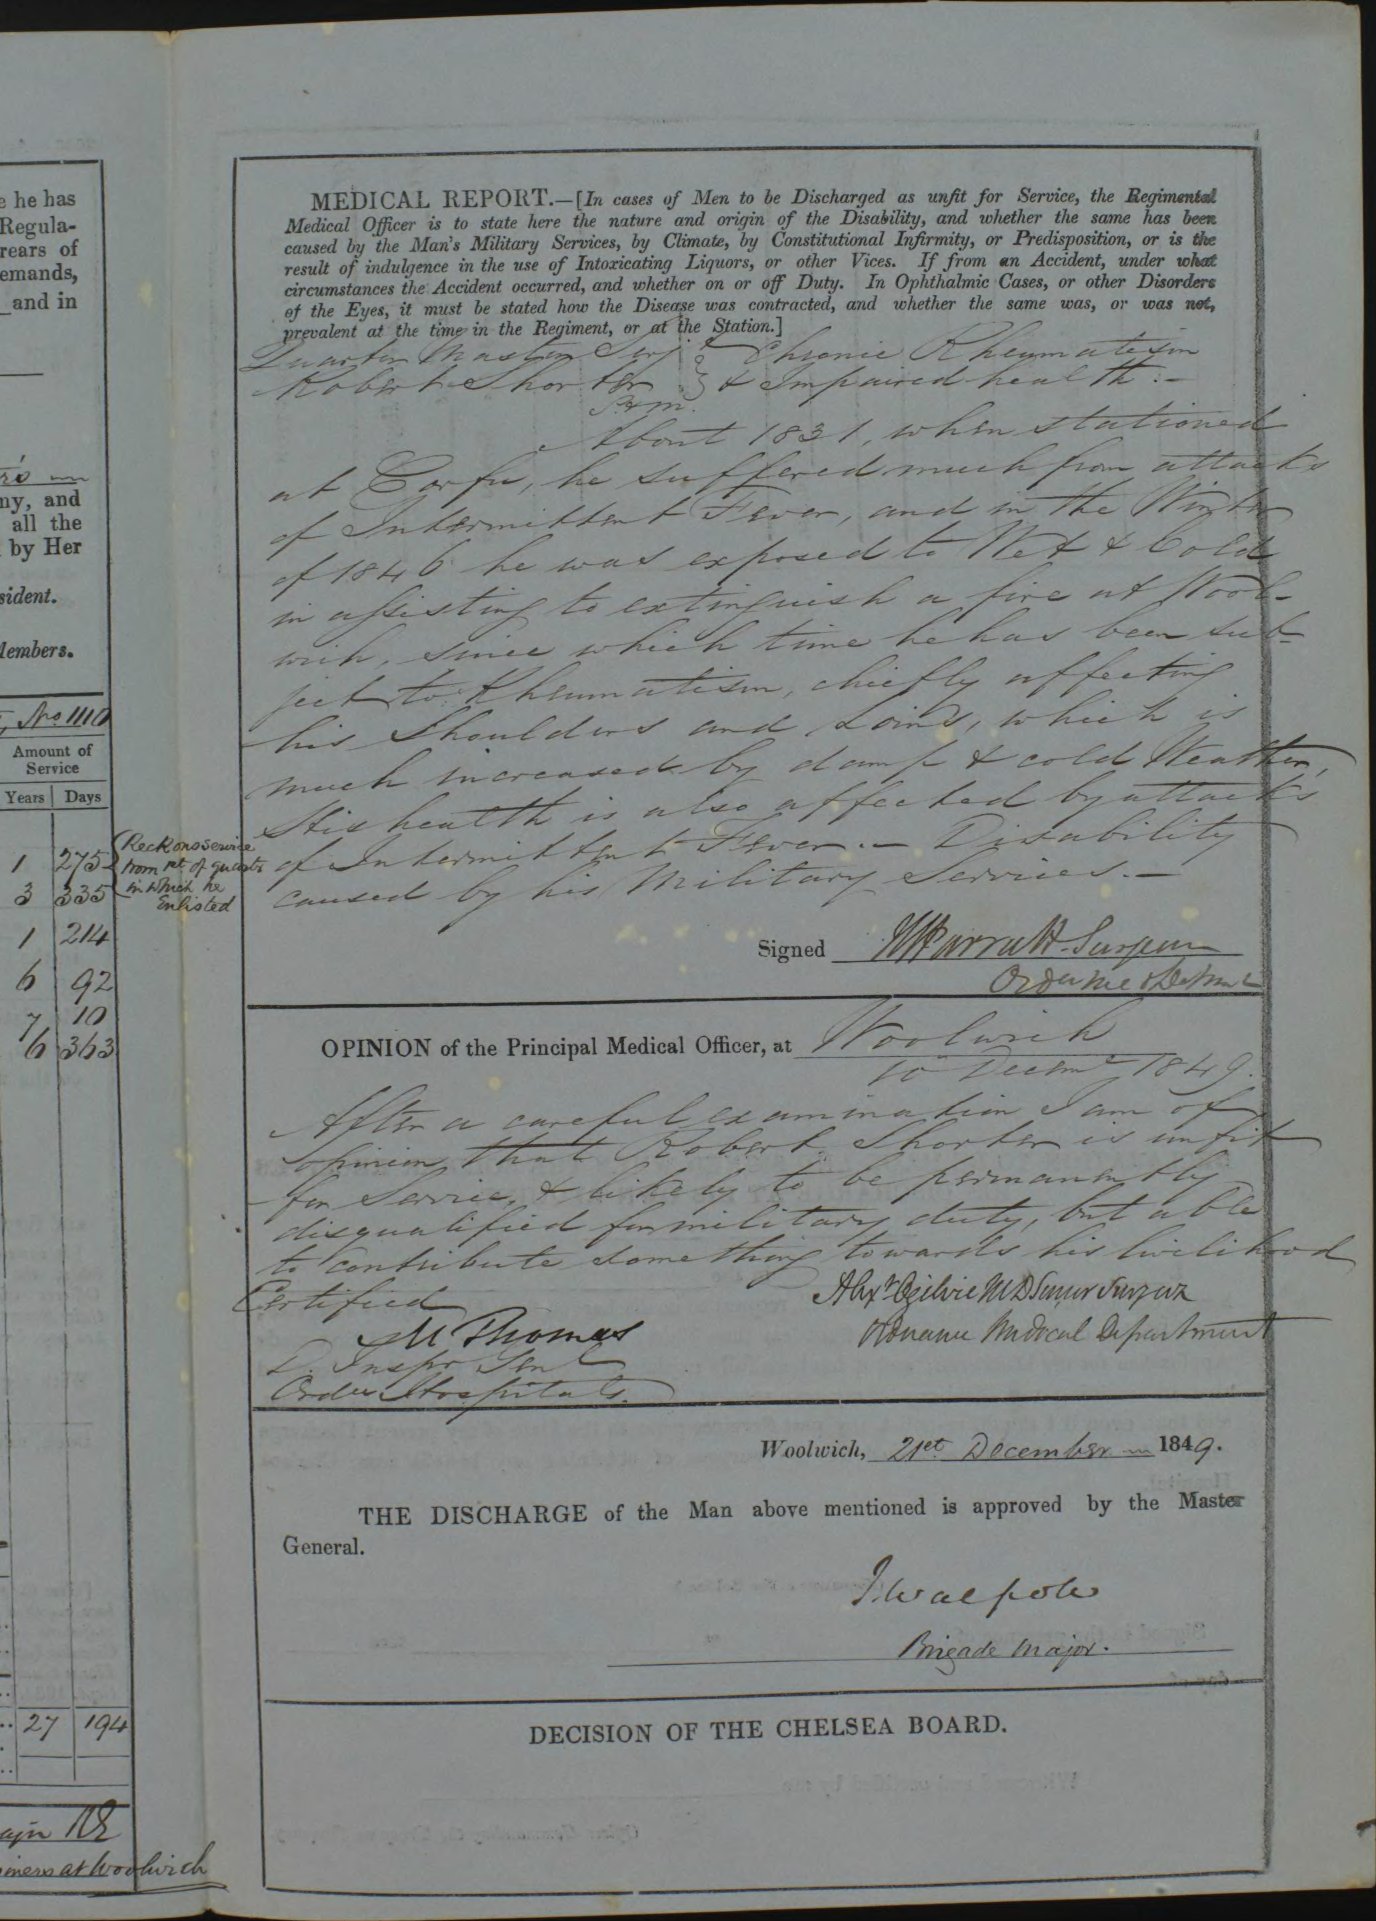 e he has
Regula-
rears of
emands,
and in
ny, and
all the
by Her
sident.
Members.
No. 1110
Amount of
Service
Years Days
1 275
3 335
1 214
6 92
7 10
6 363
Reckons service
from 1st of quarter
in which he
Enlisted
27 194
RE
at Woolwich
MEDICAL REPORT.—[In cases of Men to be Discharged as unfit for Service, the Regimental
Medical Officer is to state here the nature and origin of the Disability, and whether the same has been
caused by the Man's Military Services, by Climate, by Constitutional Infirmity, or Predisposition, or is the
result of indulgence in the use of Intoxicating Liquors, or other Vices. If from an Accident, under what
circumstances the Accident occurred, and whether on or off Duty. In Ophthalmic Cases, or other Disorders
of the Eyes, it must be stated how the Disease was contracted, and whether the same was, or was not,
prevalent at the time in the Regiment, or at the Station.]
Quarter Master Serj. } Chronic Rheumatism
Robert Shorter } & Impaired health:-
About 1831, when stationed
at Corfu, he suffered much from attacks
of Intermittent Fever, and in the Winter
of 1846 he was exposed to Wet & Cold
in assisting to extinguish a fire at Wool-
wich, since which time he has been sub-
ject to Rheumatism, chiefly affecting
his Shoulders and Loins, which is
much increased by damp & cold Weather,
His health is also affected by attacks
of Intermittent Fever.- Disability
caused by his Military Services.-
Signed Parratt Surgeon
Ordnance
OPINION of the Principal Medical Officer, at Woolwich
10 Decemr 1849.
After a careful examination I am of
opinion that Robert Shorter is unfit
for Service, & likely to be permanently
disqualified for military duty, but able
to contribute something towards his livelihood
Certified
M Thomas
D. Inspr Genl
Ordce Hospitals.
Alexr Ogilvie MD Senior Surgeon
Ordnance Medical Department
Woolwich, 21st December 1849.
THE DISCHARGE of the Man above mentioned is approved by the Master
General.
J Walpole
Brigade Major.
DECISION OF THE CHELSEA BOARD.